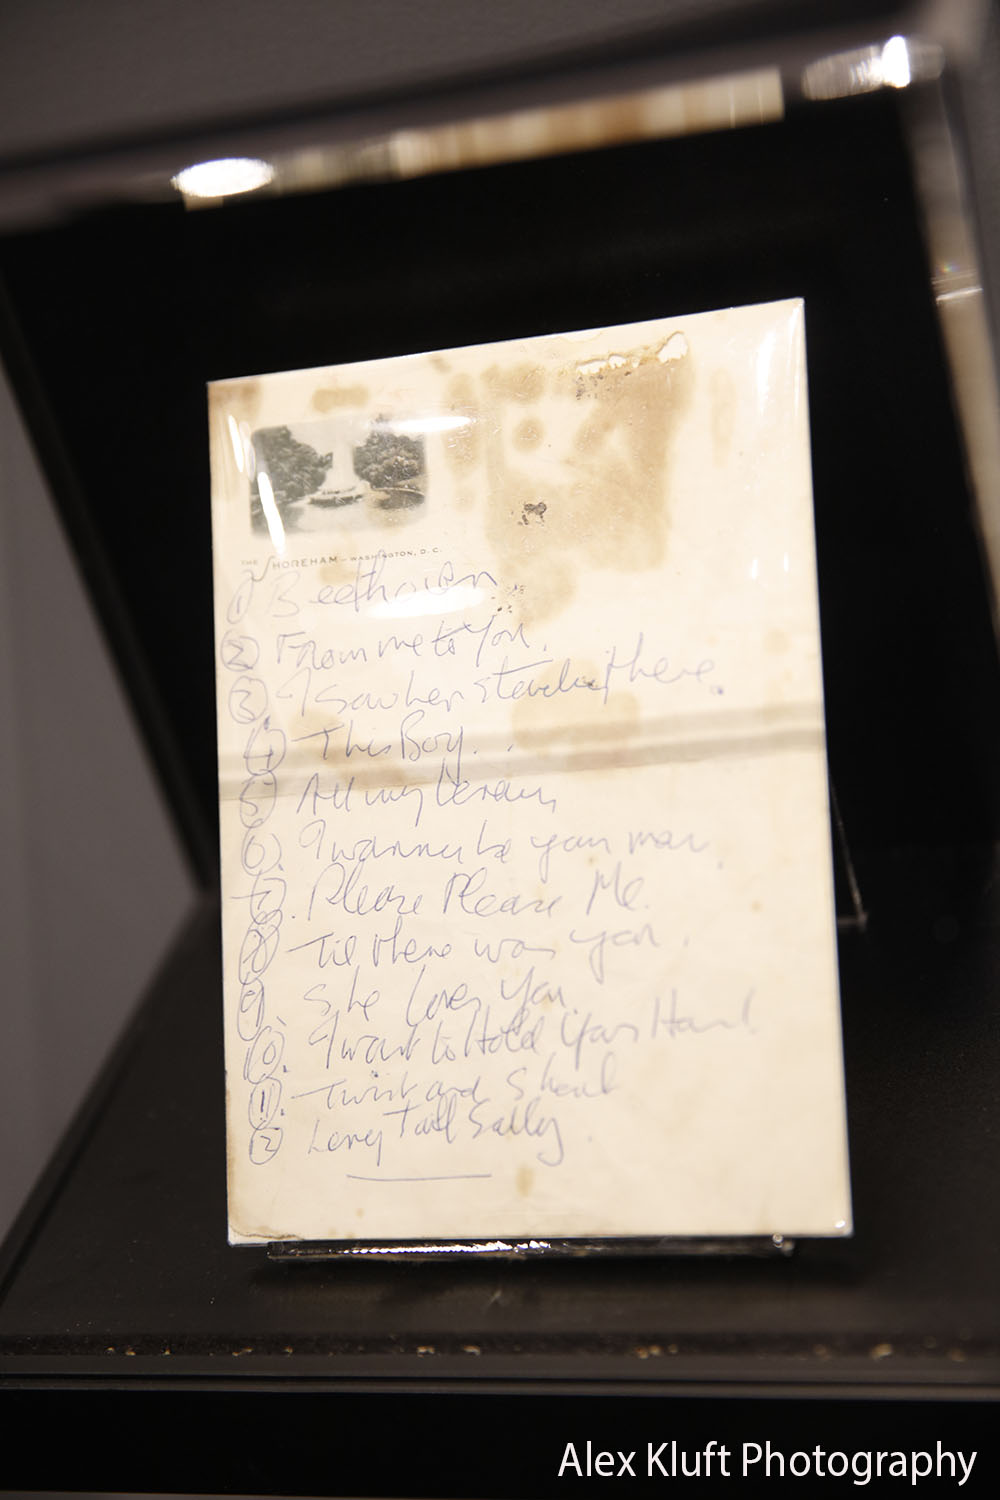 THE SHOREHAM - WASHINGTON, D.C.
① Beethoven.
② From me to You.
③ I saw her standing there.
④ This Boy..
⑤ All my Loving
⑥. I wanna be your man.
⑦. Please Please Me.
⑧ Til there was you.
⑨. She loves You.
⑩. I want to Hold Your Hand
⑪. Twist and Shout
⑫ Long Tall Sally.
Alex Kluft Photography